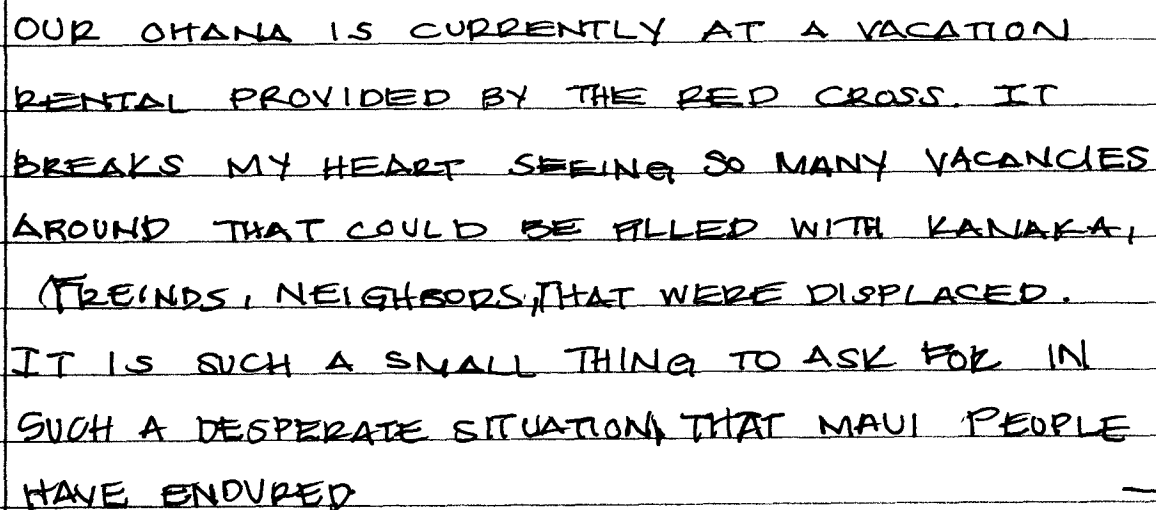 OUR OHANA IS CURRENTLY AT A VACATION
RENTAL PROVIDED BY THE RED CROSS. IT
BREAKS MY HEART SEEING SO MANY VACANCIES
AROUND THAT COULD BE FILLED WITH KANAKA,
(FREINDS, NEIGHBORS, THAT WERE DISPLACED.
IT IS SUCH A SMALL THING TO ASK FOR IN
SUCH A DESPERATE SITUATION, THAT MAUI PEOPLE
HAVE ENDURED —